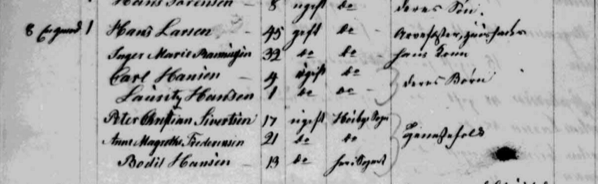 Hans Sørensen 8 ugift do deres Søn.
8 1 Hans Larsen 45 gift do
Inger Marie Rasmussen 32 do do hans Kone
Carl Hansen 4 ugift do deres Børn
Lauritz Hansen 1 do do
Peter Christian Sivertsen 17 ugift
Ane Magrethe 21 do do Tjenestefolk
Bodil Hansen 13 do